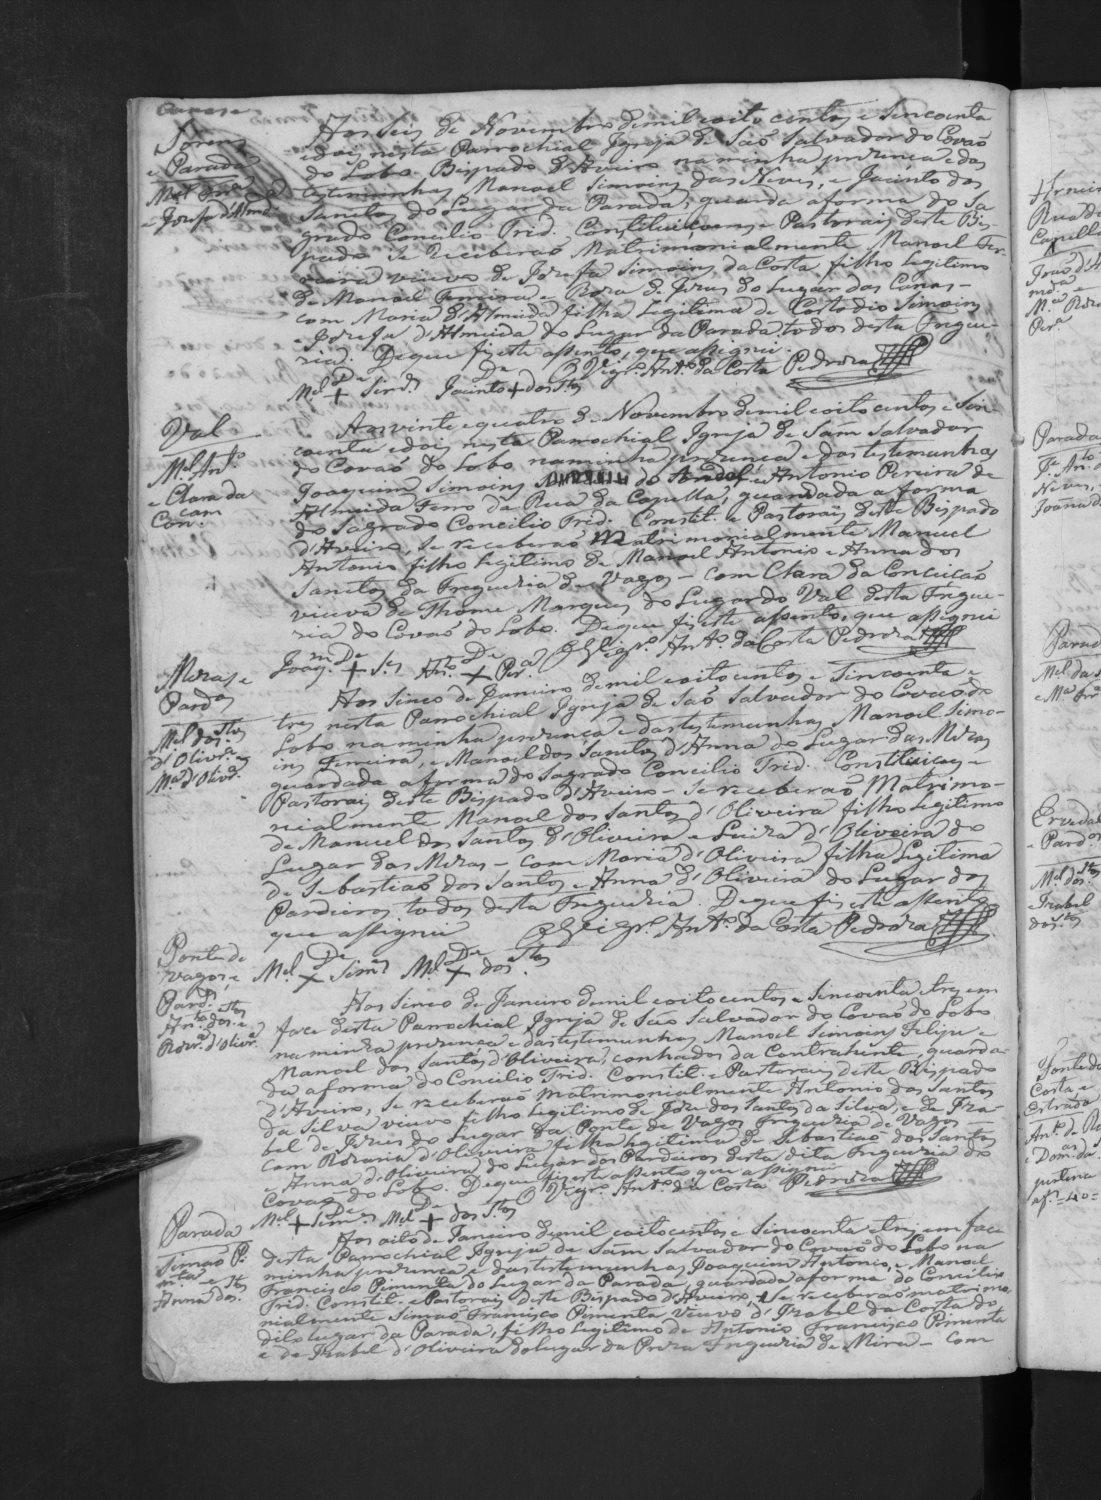 Aos seis de Novembro de mil e oito centos e Sincoenta
e dois nesta Parrochial Igreja de São Salvador do Covão
do Lobo Bispado d'Aveiro na minha prezença e das
testeminhas Manoel Simoins das Neves, e Jacinto dos
Sanctos do Lugar da Parada, guarda a forma do Sa-
grado Concilio Trid. Constituicoens e Pastorais deste Bis-
pado se receberaõ Matrimonialmente Manoel Fer-
reira viuvo de Jozefa Simoins da Costa, filho legitimo
de Manoel Ferreira e Roza de Jezus do Lugar dos
com Maria d'Almeida filha Legitima de Custodio Simoins
e Jozefa d'Almeida do Lugar da Parada todos desta Fregue-
zia. De que fiz este assento, que assignei.
O Vigr.º Ant.º da Costa Pedroza
Mel De + Jacinto De + dos Stos
e Parada
Mel
e Jozefa d'Almd.
Val
M.el Ant.º
e Clara da
Con.
Aos vinte e quatro de Novembro de mil e oito centos e Sin-
coenta e dois nesta Parrochial Igreja de Sam Salvador
do Covaõ do Lobo na minha prezença e das testemunhas
Joaquim Simoins do e Antonio Pereira de
Almeida Ferro da Rua da Capella, guardada a forma
do Sagrado Concilio Trid. Constit. e Pastorais deste Bispado
d'Aveiro, se receberaõ Matrimonialmente Manuel
Antonio filho legitimo de Manoel Antonio e Anna dos
Sanctos da Freguezia de Vagos - com Clara da Conceicaõ
viuva de Thome Marques do Lugar do Val desta Fregue-
zia do Covaõ do Lobo. De que fiz este assento, que assignei
O Vigr.º Ant.º da Costa Pedroza
Joaq.m De + S.es Ant.º De + Per.ª
Mezas e
Pard.os
Mel dos Stos
d'Olivr.ª e
M.ª d'Olivr.ª
Aos Sinco de Janeiro de mil e oito centos e Sincoenta e
tres nesta Parrochial Igreja de Saõ Salvador do Covaõ do
Lobo na minha prezença e das testemunhas Manoel Simo-
ins Ferreira, e Manoel dos Sanctos d'Anna do Lugar das Mezas
guardada a forma do Sagrado Concilio Trid. Constituicoes e
Pastorais deste Bispado d'Aveiro - se receberaõ Matrimo-
nialmente Manoel dos Sanctos d'Oliveira filho legitimo
de Manuel dos Santos d'Oliveira e Luiza d'Oliveira do
Lugar das Mezas - com Maria d'Oliveira filha Legitima
de Sebastiaõ dos Santos e Anna d'Oliveira do Lugar dos
Pardieiros todos desta Freguezia. De que fiz este assento
que assignei O Vigr.º Ant.º da Costa Pedroza
M.el De + Sim.es M.el De + dos S.tos
Ponte de
Vagos, e
Pard.os
Ant.º dos S.tos e
Rozr.ª d'Olivr.ª
Aos Sinco de Janeiro de mil e oito centos e Sincoenta e tres em
face desta Parrochial Igreja de Saõ Salvador do Covaõ do Lobo
na minha prezença e das testemunhas, Manoel Simoins Felipe e
Manoel dos Santos d'Oliveira, conhados da Contrahente, guarda-
da a forma do Concilio Trid. Constit. e Pastorais deste Bispado
d'Aveiro, se receberaõ Matrimonialmente Antonio dos Santos
da Silva viuvo filho legitimo de Joze dos Santos da Silva, e de Iza-
bel de Jezus do Lugar da Ponte de Vagos Freguezia de Vagos -
com Rozaria d'Oliveira filha legitima de Sebastiaõ dos Santos
e Anna d'Oliveira do Lugar dos Pardieiros desta dita Freguezia do
Covaõ do Lobo. De que fiz este assento que assignei
O Vigr.º Ant.º da Costa Pedroza
Mel De + Sim.es Mel De + dos S.tos
Parada
Simaõ P.
e
Anna dos S.tos
Aos oito de Janeiro de mil e oito centos e Sincoenta e tres em face
desta Parrochial Igreja de Sam Salvador do Covaõ do Lobo na
minha prezença e das testemunhas Joaquim Antonio, e Manoel
Francisco Pimenta do Lugar da Parada, guardada a forma do Concilio
Trid. Constit. e Pastorais deste Bispado d'Aveiro, se receberaõ matrimo-
nialmente Simaõ Francisco Pimenta Viuvo d'Izabel da Costa do
dito lugar da Parada, filho legitimo de Antonio Francisco Pimenta
e de Izabel d'Oliveira do lugar da Freguezia de Mira - com
Rua da
Capella
Parada
Neves,
Joanna d
Parad
Mel da S
e M.ª
e Pard.os
M.el dos S.tos
e Izabel
dos S.tos
Costa e
Estrada
Ant.º de
e Dom.as